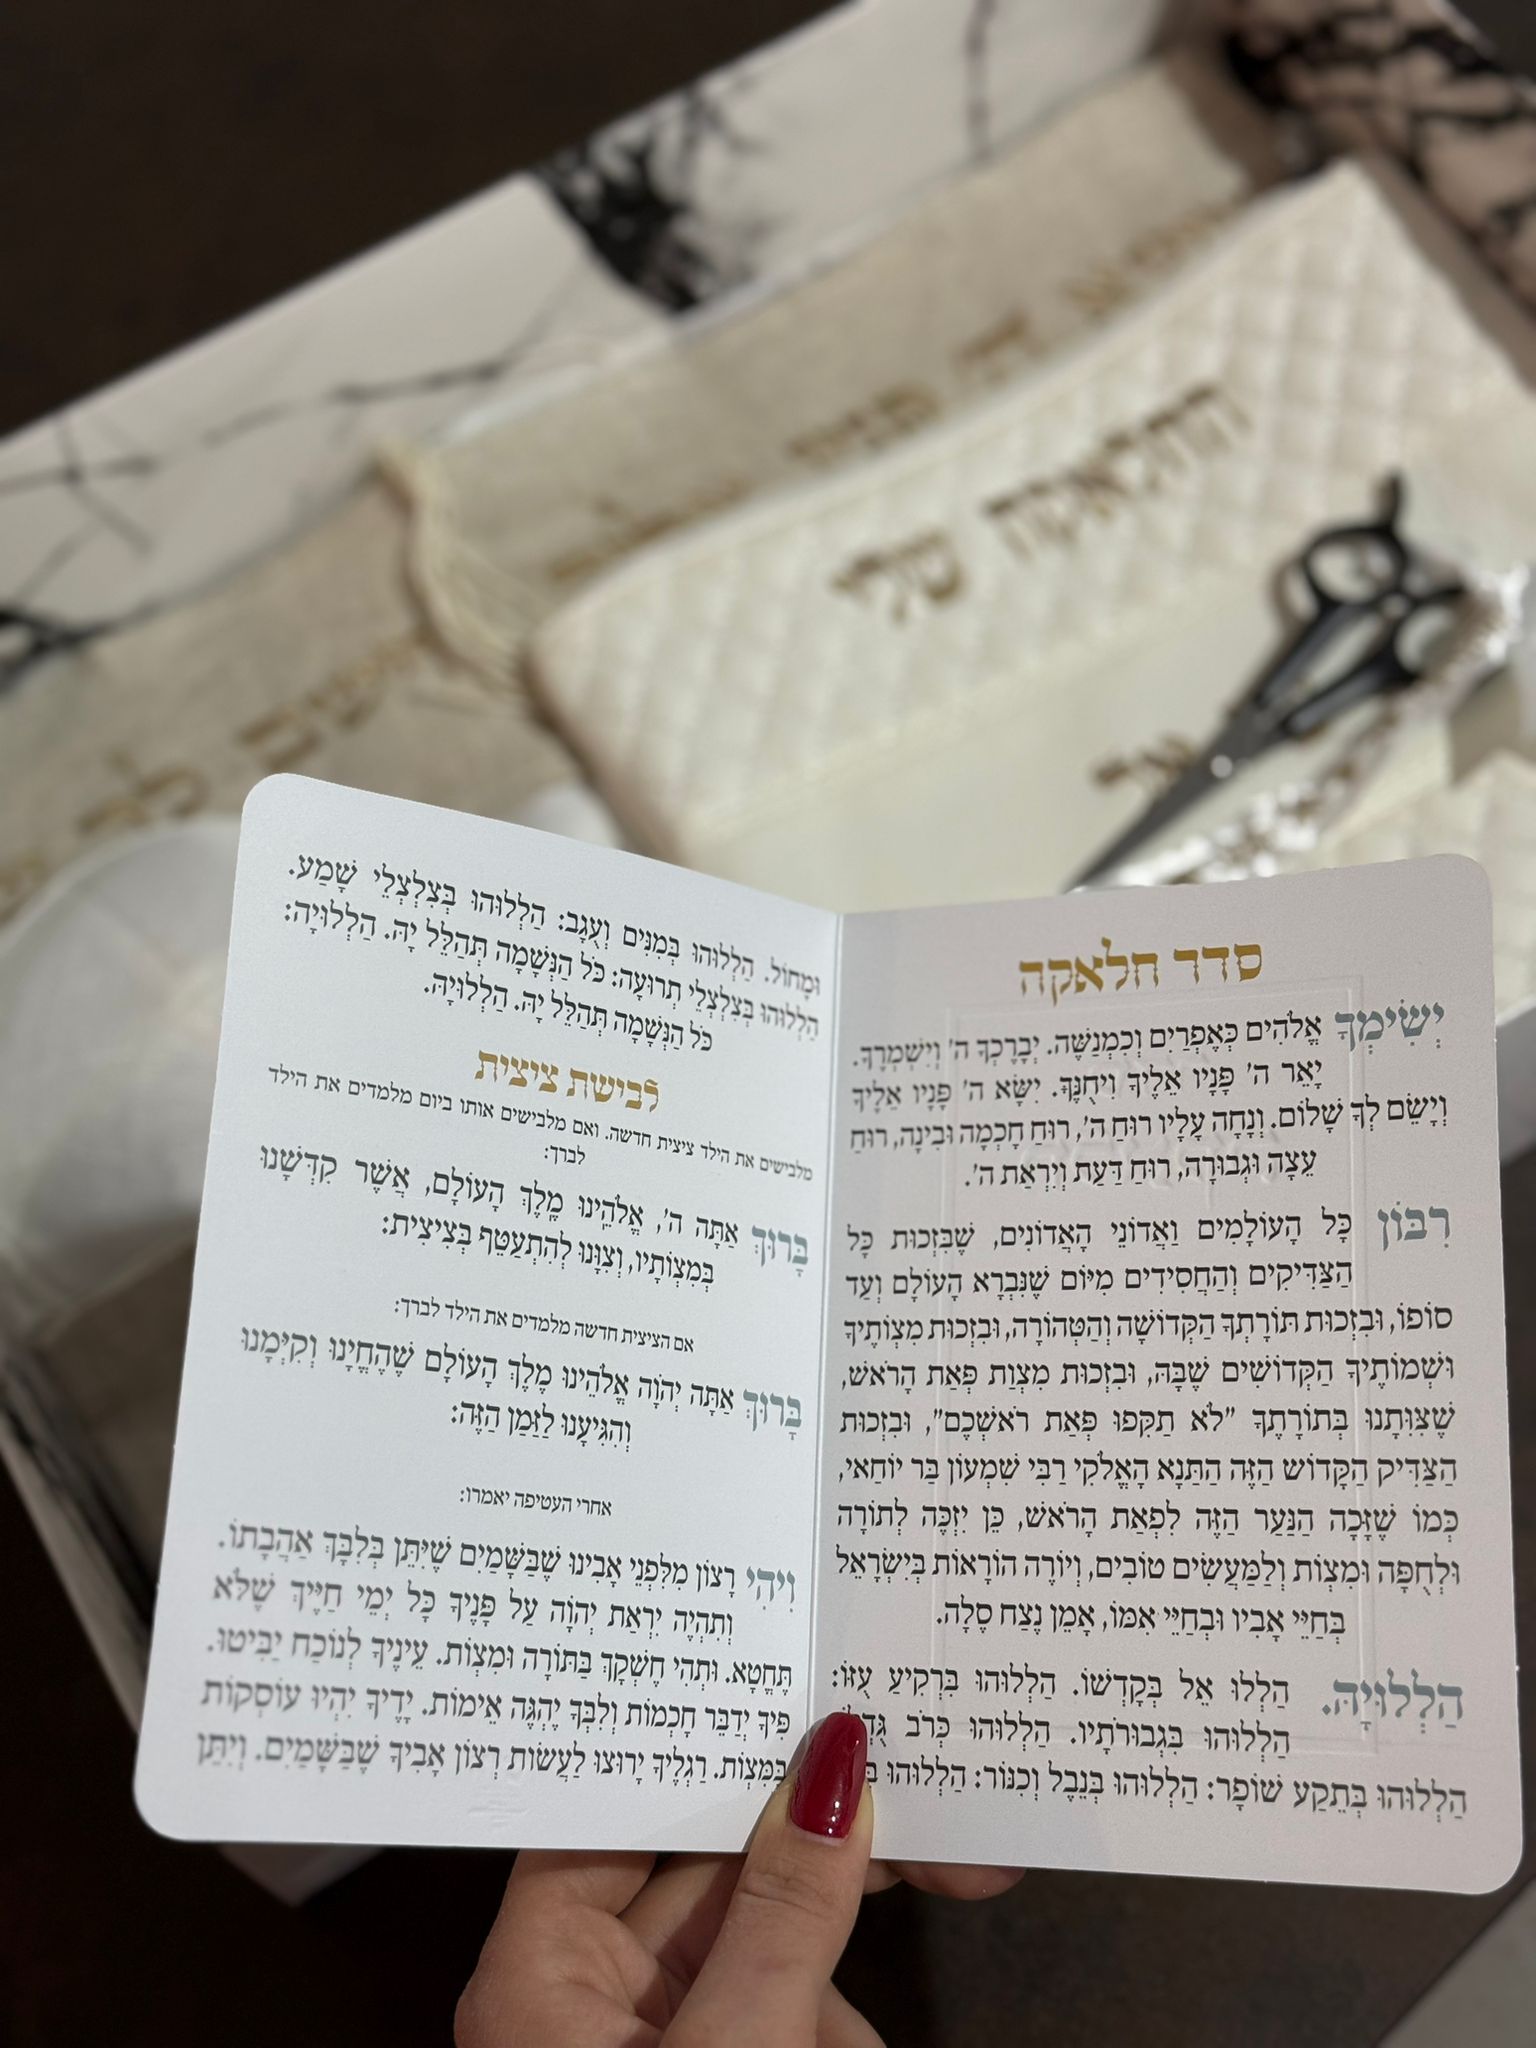 החלאקה שלי
סדר חלאקה
יְשִׂימְךָ אֱלֹהִים כְּאֶפְרַיִם וְכִמְנַשֶּׁה. יְבָרֶכְךָ ה' וְיִשְׁמְרֶךָ.
יָאֵר ה' פָּנָיו אֵלֶיךָ וִיחֻנֶּךָּ. יִשָּׂא ה' פָּנָיו אֵלֶיךָ
וְיָשֵׂם לְךָ שָׁלוֹם. וְנָחָה עָלָיו רוּחַ ה', רוּחַ חָכְמָה וּבִינָה, רוּחַ
עֵצָה וּגְבוּרָה, רוּחַ דַּעַת וְיִרְאַת ה'.
רִבּוֹן כָּל הָעוֹלָמִים וַאֲדוֹנֵי הָאֲדוֹנִים, שֶׁבִּזְכוּת כָּל
הַצַּדִּיקִים וְהַחֲסִידִים מִיּוֹם שֶׁנִּבְרָא הָעוֹלָם וְעַד
סוֹפוֹ, וּבִזְכוּת תּוֹרָתְךָ הַקְּדוֹשָׁה וְהַטְּהוֹרָה, וּבִזְכוּת מִצְוֹתֶיךָ
וּשְׁמוֹתֶיךָ הַקְּדוֹשִׁים שֶׁבָּהּ, וּבִזְכוּת מִצְוַת פְּאַת הָרֹאשׁ,
שֶׁצִּוִּתָנוּ בְּתוֹרָתֶךָ "לֹא תַקִּפוּ פְּאַת רֹאשְׁכֶם", וּבִזְכוּת
הַצַּדִּיק הַקָּדוֹשׁ הַזֶּה הַתַּנָּא הָאֱלֹקִי רַבִּי שִׁמְעוֹן בַּר יוֹחַאי,
כְּמוֹ שֶׁזָּכָה הַנַּעַר הַזֶּה לִפְאַת הָרֹאשׁ, כֵּן יִזְכֶּה לְתוֹרָה
וּלְחֻפָּה וּמִצְוֹת וְלַמַּעֲשִׂים טוֹבִים, וְיוֹרֶה הוֹרָאוֹת בְּיִשְׂרָאֵל
בְּחַיֵּי אָבִיו וּבְחַיֵּי אִמּוֹ, אָמֵן נֶצַח סֶלָה.
הַלְלוּיָהּ. הַלְלוּ אֵל בְּקָדְשׁוֹ. הַלְלוּהוּ בִּרְקִיעַ עֻזּוֹ:
הַלְלוּהוּ בִּגְבוּרֹתָיו. הַלְלוּהוּ כְּרֹב
הַלְלוּהוּ בְּתֵקַע שׁוֹפָר: הַלְלוּהוּ בְּנֵבֶל וְכִנּוֹר: הַלְלוּהוּ
וּמָחוֹל. הַלְלוּהוּ בְּמִנִּים וְעֻגָב: הַלְלוּהוּ בְּצִלְצְלֵי שָׁמַע.
הַלְלוּהוּ בְּצִלְצְלֵי תְרוּעָה: כֹּל הַנְּשָׁמָה תְּהַלֵּל יָהּ. הַלְלוּיָהּ:
כֹּל הַנְּשָׁמָה תְּהַלֵּל יָהּ. הַלְלוּיָהּ.
לבישת ציצית
מלבישים את הילד ציצית חדשה. ואם מלבישים אותו ביום מלמדים את הילד
לברך:
בָּרוּךְ אַתָּה ה', אֱלֹהֵינוּ מֶלֶךְ הָעוֹלָם, אֲשֶׁר קִדְּשָׁנוּ
בְּמִצְוֹתָיו, וְצִוָּנוּ לְהִתְעַטֵּף בְּצִיצִית:
אם הציצית חדשה מלמדים את הילד לברך:
בָּרוּךְ אַתָּה יְהֹוָה אֱלֹהֵינוּ מֶלֶךְ הָעוֹלָם שֶׁהֶחֱיָנוּ וְקִיְּמָנוּ
וְהִגִּיעָנוּ לַזְּמַן הַזֶּה:
אחרי העטיפה יאמרו:
וִיהִי רָצוֹן מִלִּפְנֵי אָבִינוּ שֶׁבַּשָּׁמַיִם שֶׁיִּתֵּן בְּלִבָּךְ אַהֲבָתוֹ.
וְתִהְיֶה יִרְאַת יְהֹוָה עַל פָּנֶיךָ כָּל יְמֵי חַיֶּיךָ שֶׁלֹּא
תֶּחֱטָא. וּתְהִי חֶשְׁקָךְ בַּתּוֹרָה וּמִצְוֹת. עֵינֶיךָ לְנוֹכַח יַבִּיטוּ.
פִּיךָ יְדַבֵּר חָכְמוֹת וְלִבְּךָ יֶהְגֶּה אֵימוֹת. יָדֶיךָ יִהְיוּ עוֹסְקוֹת
בְּמִצְוֹת. רַגְלֶיךָ יָרוּצוּ לַעֲשׂוֹת רְצוֹן אָבִיךָ שֶׁבַּשָּׁמַיִם. וְיִתֵּן